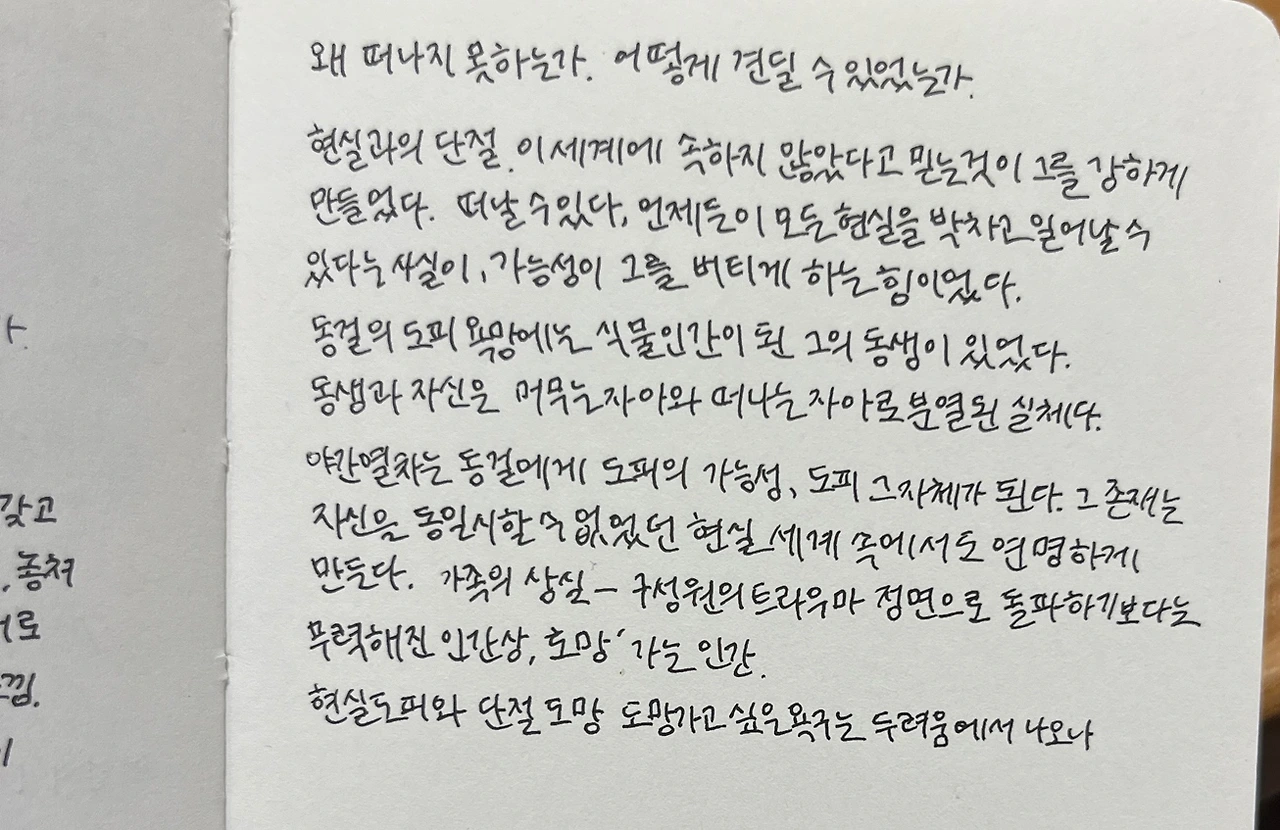 왜 떠나지 못하는가. 어떻게 견딜 수 있었는가.
현실과의 단절. 이 세계에 속하지 않았다고 믿는것이 그를 강하게
만들었다. 떠날 수 있다, 언제든이 모든 현실을 박차고 일어날 수
있다는 사실이, 가능성이 그를 버티게 하는 힘이었다.
동걸의 도피 욕망에는 식물인간이 된 그의 동생이 있었다.
동생과 자신은 머무는 자아와 떠나는 자아로 분열된 실체다.
야간열차는 동걸에게 도피의 가능성, 도피 그 자체가 된다. 그 존재는
자신을 동일시할 수 없었던 현실 세계 속에서도 연명하게
만든다. 가족의 상실 - 구성원의 트라우마 정면으로 돌파하기보다는
무력해진 인간상, '도망' 가는 인간.
현실도피와 단절 도망 도망가고 싶은 욕구는 두려움에서 나오나
갖고
놓쳐
로
낌.